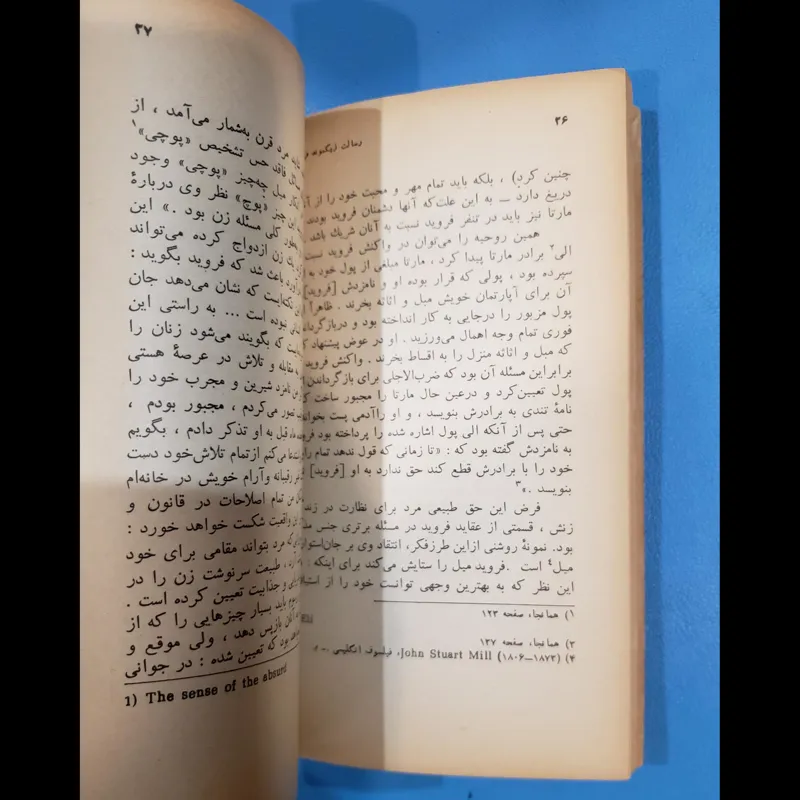 ۳۶
رسالت زیگموند
چنین کرد) ، بلکه باید تمام مهر و محبت خود را از آن
دریغ دارد — به این علت‌که آنها دشمنان فروید بودند
مارتا نیز باید در تنفر فروید نسبت به آنان شریك باشد
همین روحیه را می‌توان در واکنش فروید نسبت
الی۲ برادر مارتا پیدا کرد ، مارتا مبلغی از پول خود به
سپرده بود ، پولی که قرار بوده او و نامزدش [فروید]
آن برای آپارتمان خویش مبل و اثاثه بخرند . ظاهراً
پول مزبور را درجایی به کار انداخته بود و دربازگرداند
فوری تمام وجه اهمال می‌ورزید . او در عوض پیشنهاد
که مبل و اثاثه منزل را به اقساط بخرند . واکنش فروید
برابراین مسئله آن بود که ضرب‌الاجلی برای بازگرداندن
پول تعیین‌کرد و درعین حال مارتا را مجبور ساخت
نامهٔ تندی به برادرش بنویسد ، و او راآدمی پست بخواند
حتی پس از آنکه الی پول اشاره شده را پرداخته بود
به نامزدش گفته بود که : «تا زمانی که قول ندهد تمام
خود را با برادرش قطع کند حق ندارد به او [فروید]
بنویسد .»۳
فرض این حق طبیعی مرد برای نظارت در
زنش ، قسمتی از عقاید فروید در مسئله برتری جنس
بود. نمونهٔ روشنی ازاین طرزفکر، انتقاد وی بر جان‌استوارت
میل۴ است . فروید میل را ستایش می‌کند برای اینکه :
این نظر که به بهترین وجهی توانست خود را از
۱) همانجا، صفحه ۱۲۳
Eli
۳) همانجا، صفحه ۱۳۷
۴) John Stuart Mill (۱۸۰۶–۱۸۷۳)، فیلسوف انگلیسی
۳۷
مرد قرن به‌شمار می‌آمد ، از
فاقد حس تشخیص «پوچی»۱
میل چه‌چیز «پوچی» وجود
این چیز «پوچ» نظر وی دربارهٔ
کلی مسئله زن بود .» این
زن ازدواج کرده می‌تواند
باعث شد که فروید بگوید :
که نشان می‌دهد جان
نبوده است ... به راستی این
که بگویند می‌شود زنان را
مقابله و تلاش در عرصهٔ هستی
نامزد شیرین و مجرب خود را
تصور می‌کردم ، مجبور بودم ،
ماه قبل به او تذکر دادم ، بگویم
می‌کنم ازتمام تلاش‌خود دست
رقیبانه وآرام خویش در خانه‌ام
من تمام اصلاحات در قانون و
واقعیت شکست خواهد خورد :
که مرد بتواند مقامی برای خود
طبیعت سرنوشت زن را در
و جذابیت تعیین کرده است .
باید بسیار چیزهایی را که از
بازپس دهد ، ولی موقع و
بود که تعیین شده : در جوانی
1) The sense of the absurd